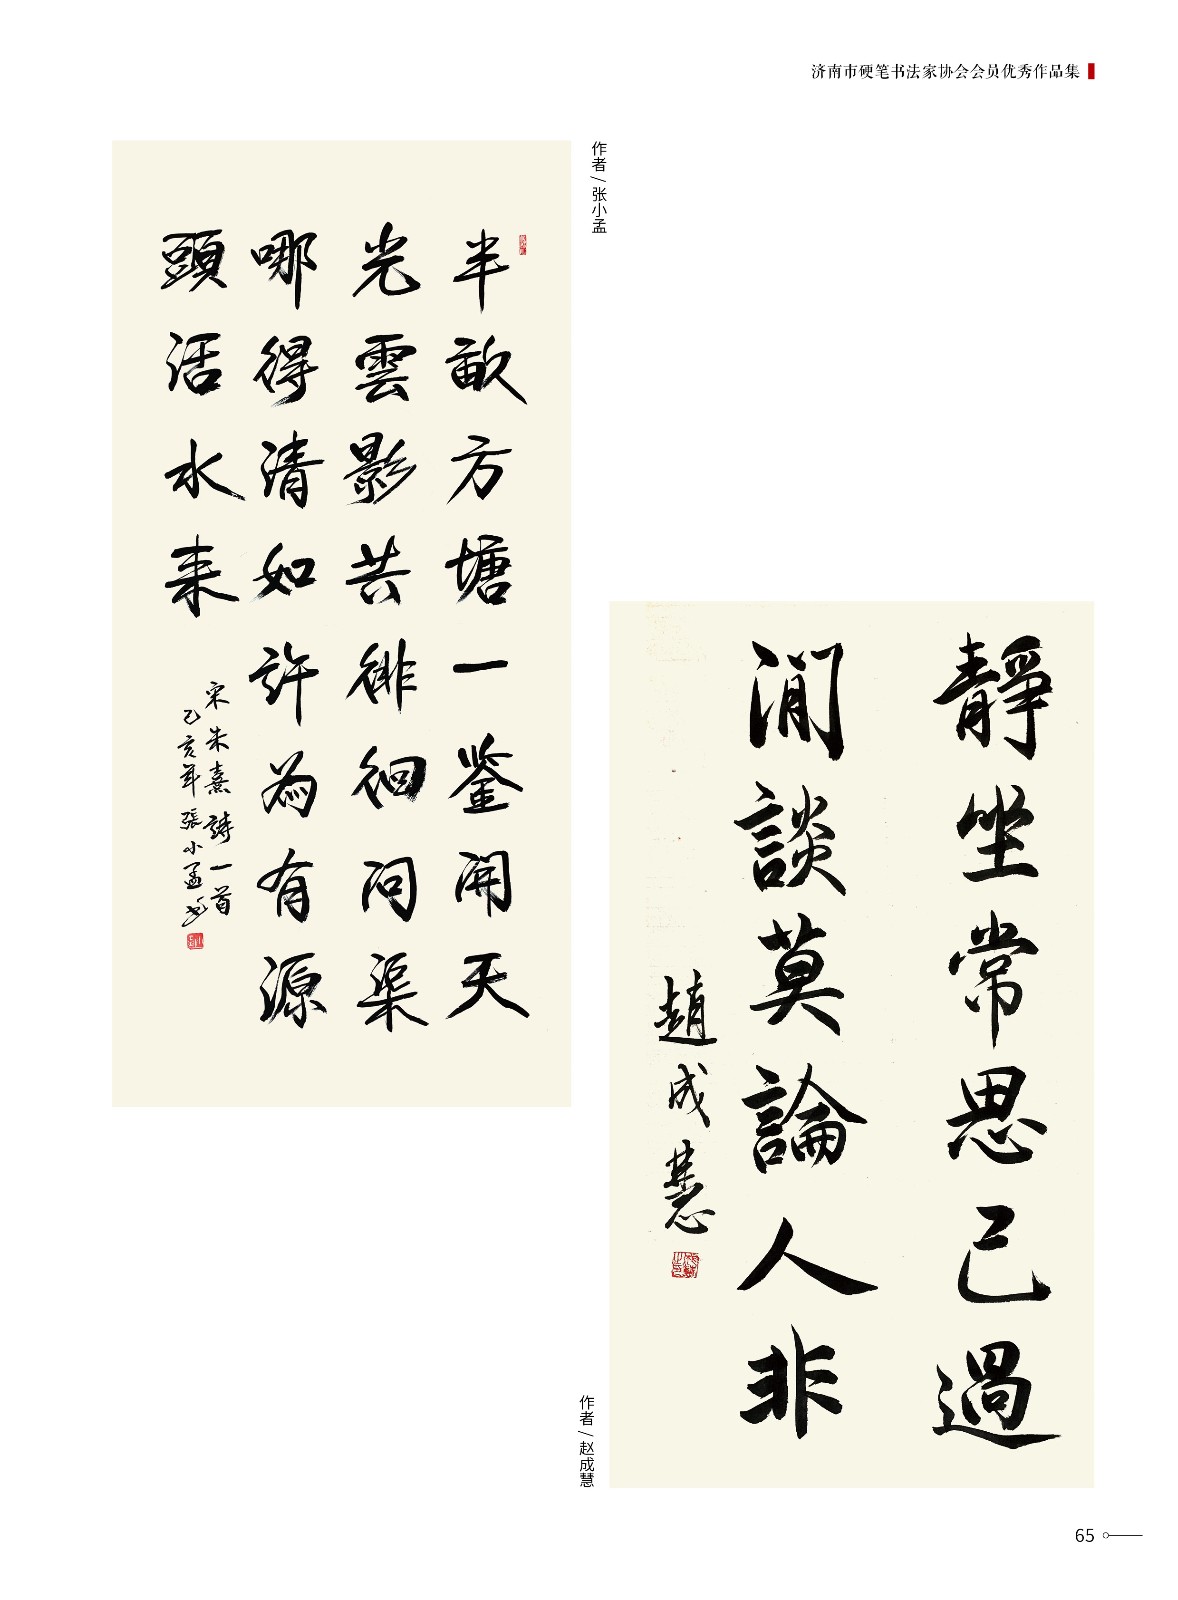 济南市硬笔书法家协会会员优秀作品集
作者/张小孟
半畝方塘一鉴開天
光雲影共徘徊問渠
哪得清如許為有源
頭活水来
宋朱熹詩一首
乙亥年張小孟书
靜坐常思己過
閒談莫論人非
趙成慧
作者/赵成慧
65